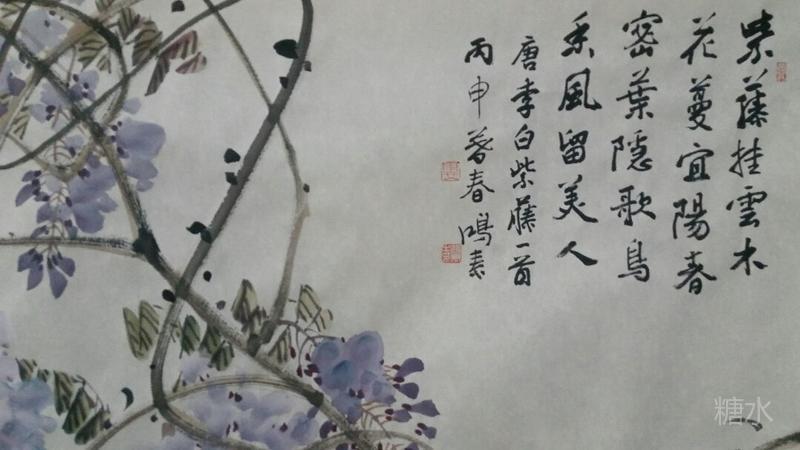 紫藤挂雲木
花蔓宜陽春
密葉隱歌鳥
香風留美人
唐李白紫藤一首
丙申暮春鴻素
糖水